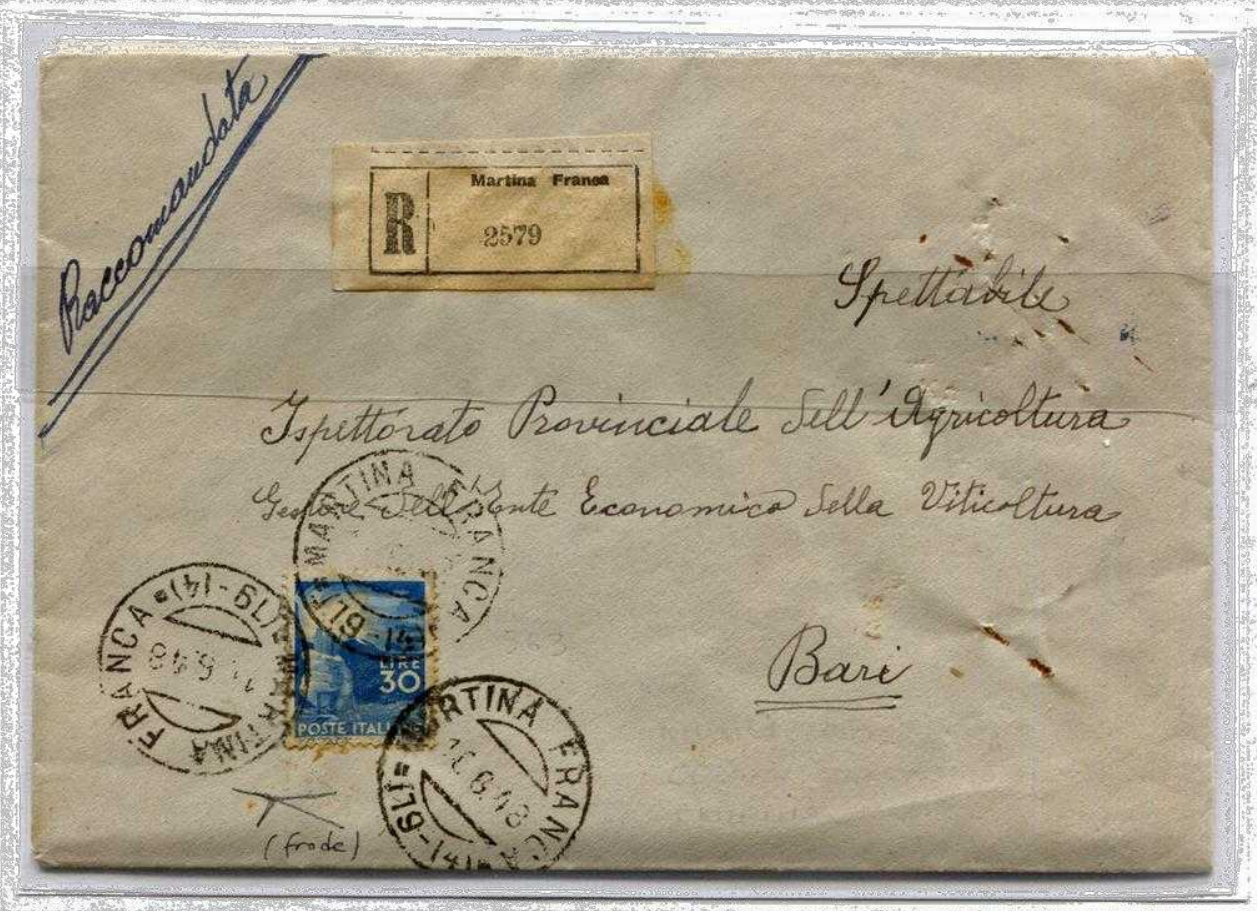 Raccomandata
Martina Franca
R
2579
Spettabile
Ispettorato Provinciale dell'Agricoltura
Gestore dell'Ente Economico della Viticoltura
Bari
MARTINA FRANCA
19-14)
MARTINA FRANCA
(19-14)
11.6.48
LIRE
30
POSTE ITALI
MARTINA FRANCA
(19-14)
6.48
(frode)